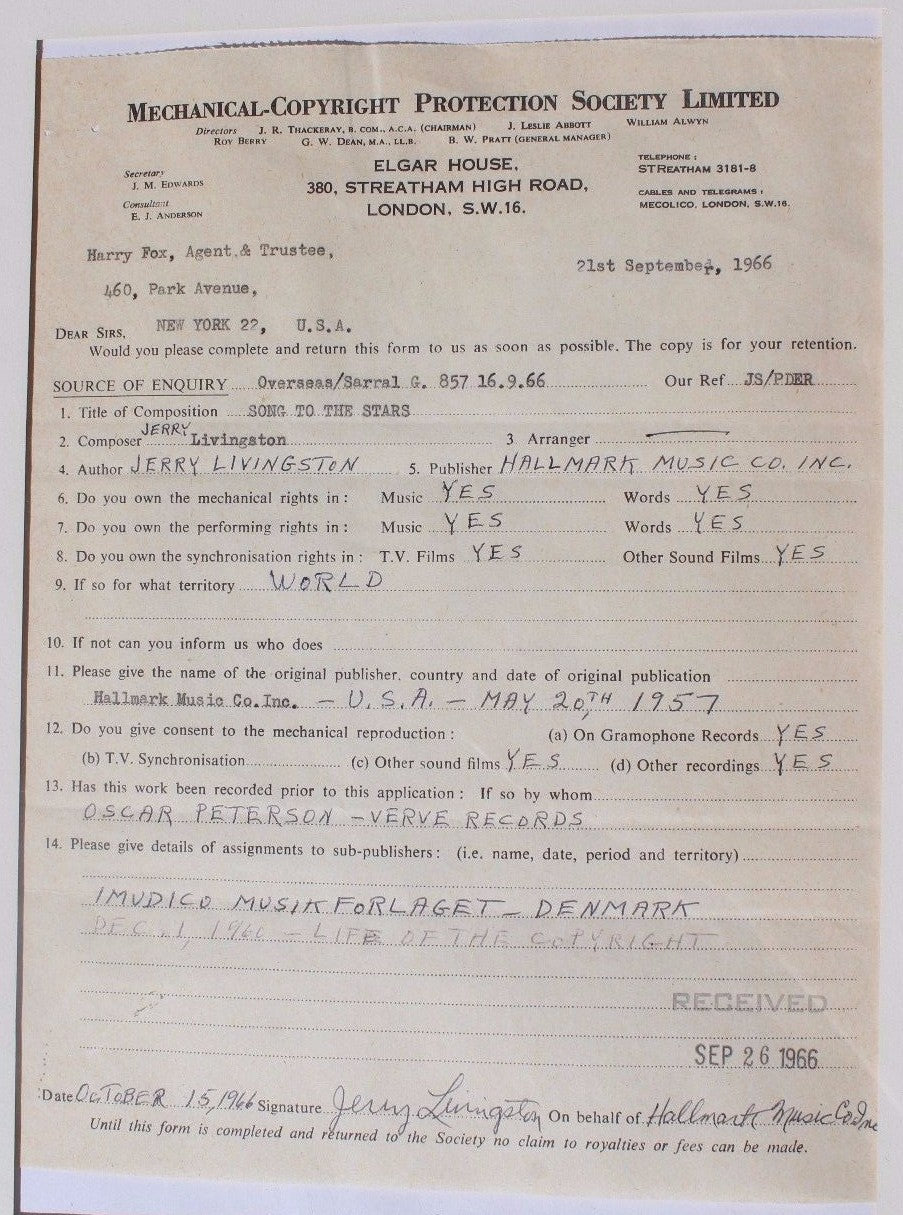 MECHANICAL-COPYRIGHT PROTECTION SOCIETY LIMITED
Directors J. R. THACKERAY, B. COM., A.C.A. (CHAIRMAN) J. LESLIE ABBOTT WILLIAM ALWYN
ROY BERRY G. W. DEAN, M.A., LL.B. B. W. PRATT (GENERAL MANAGER)
Secretary
J. M. EDWARDS
Consultant
E. J. ANDERSON
ELGAR HOUSE,
380, STREATHAM HIGH ROAD,
LONDON, S.W.16.
TELEPHONE :
STREATHAM 3181-8
CABLES AND TELEGRAMS :
MECOLICO, LONDON, S.W.16.
Harry Fox, Agent & Trustee,
21st September, 1966
460, Park Avenue,
DEAR SIRS, NEW YORK 22, U.S.A.
Would you please complete and return this form to us as soon as possible. The copy is for your retention.
SOURCE OF ENQUIRY Overseas/Sarral G. 857 16.9.66 Our Ref JS/PDER
1. Title of Composition SONG TO THE STARS
2. Composer JERRY Livingston 3 Arranger
4. Author JERRY LIVINGSTON 5. Publisher HALLMARK MUSIC CO. INC.
6. Do you own the mechanical rights in : Music YES Words YES
7. Do you own the performing rights in : Music YES Words YES
8. Do you own the synchronisation rights in : T.V. Films YES Other Sound Films YES
9. If so for what territory WORLD
10. If not can you inform us who does
11. Please give the name of the original publisher, country and date of original publication
Hallmark Music Co.Inc. - U.S.A. - MAY 20TH, 1957
12. Do you give consent to the mechanical reproduction : (a) On Gramophone Records YES
(b) T.V. Synchronisation (c) Other sound films YES (d) Other recordings YES
13. Has this work been recorded prior to this application : If so by whom
OSCAR PETERSON - VERVE RECORDS
14. Please give details of assignments to sub-publishers : (i.e. name, date, period and territory)
IMUDICO MUSIKFORLAGET - DENMARK
DEC. 1, 1960 - LIFE OF THE COPYRIGHT
RECEIVED
SEP 26 1966
Date OCTOBER 15, 1966 Signature Jerry Livingston On behalf of Hallmark Music Co Inc
Until this form is completed and returned to the Society no claim to royalties or fees can be made.